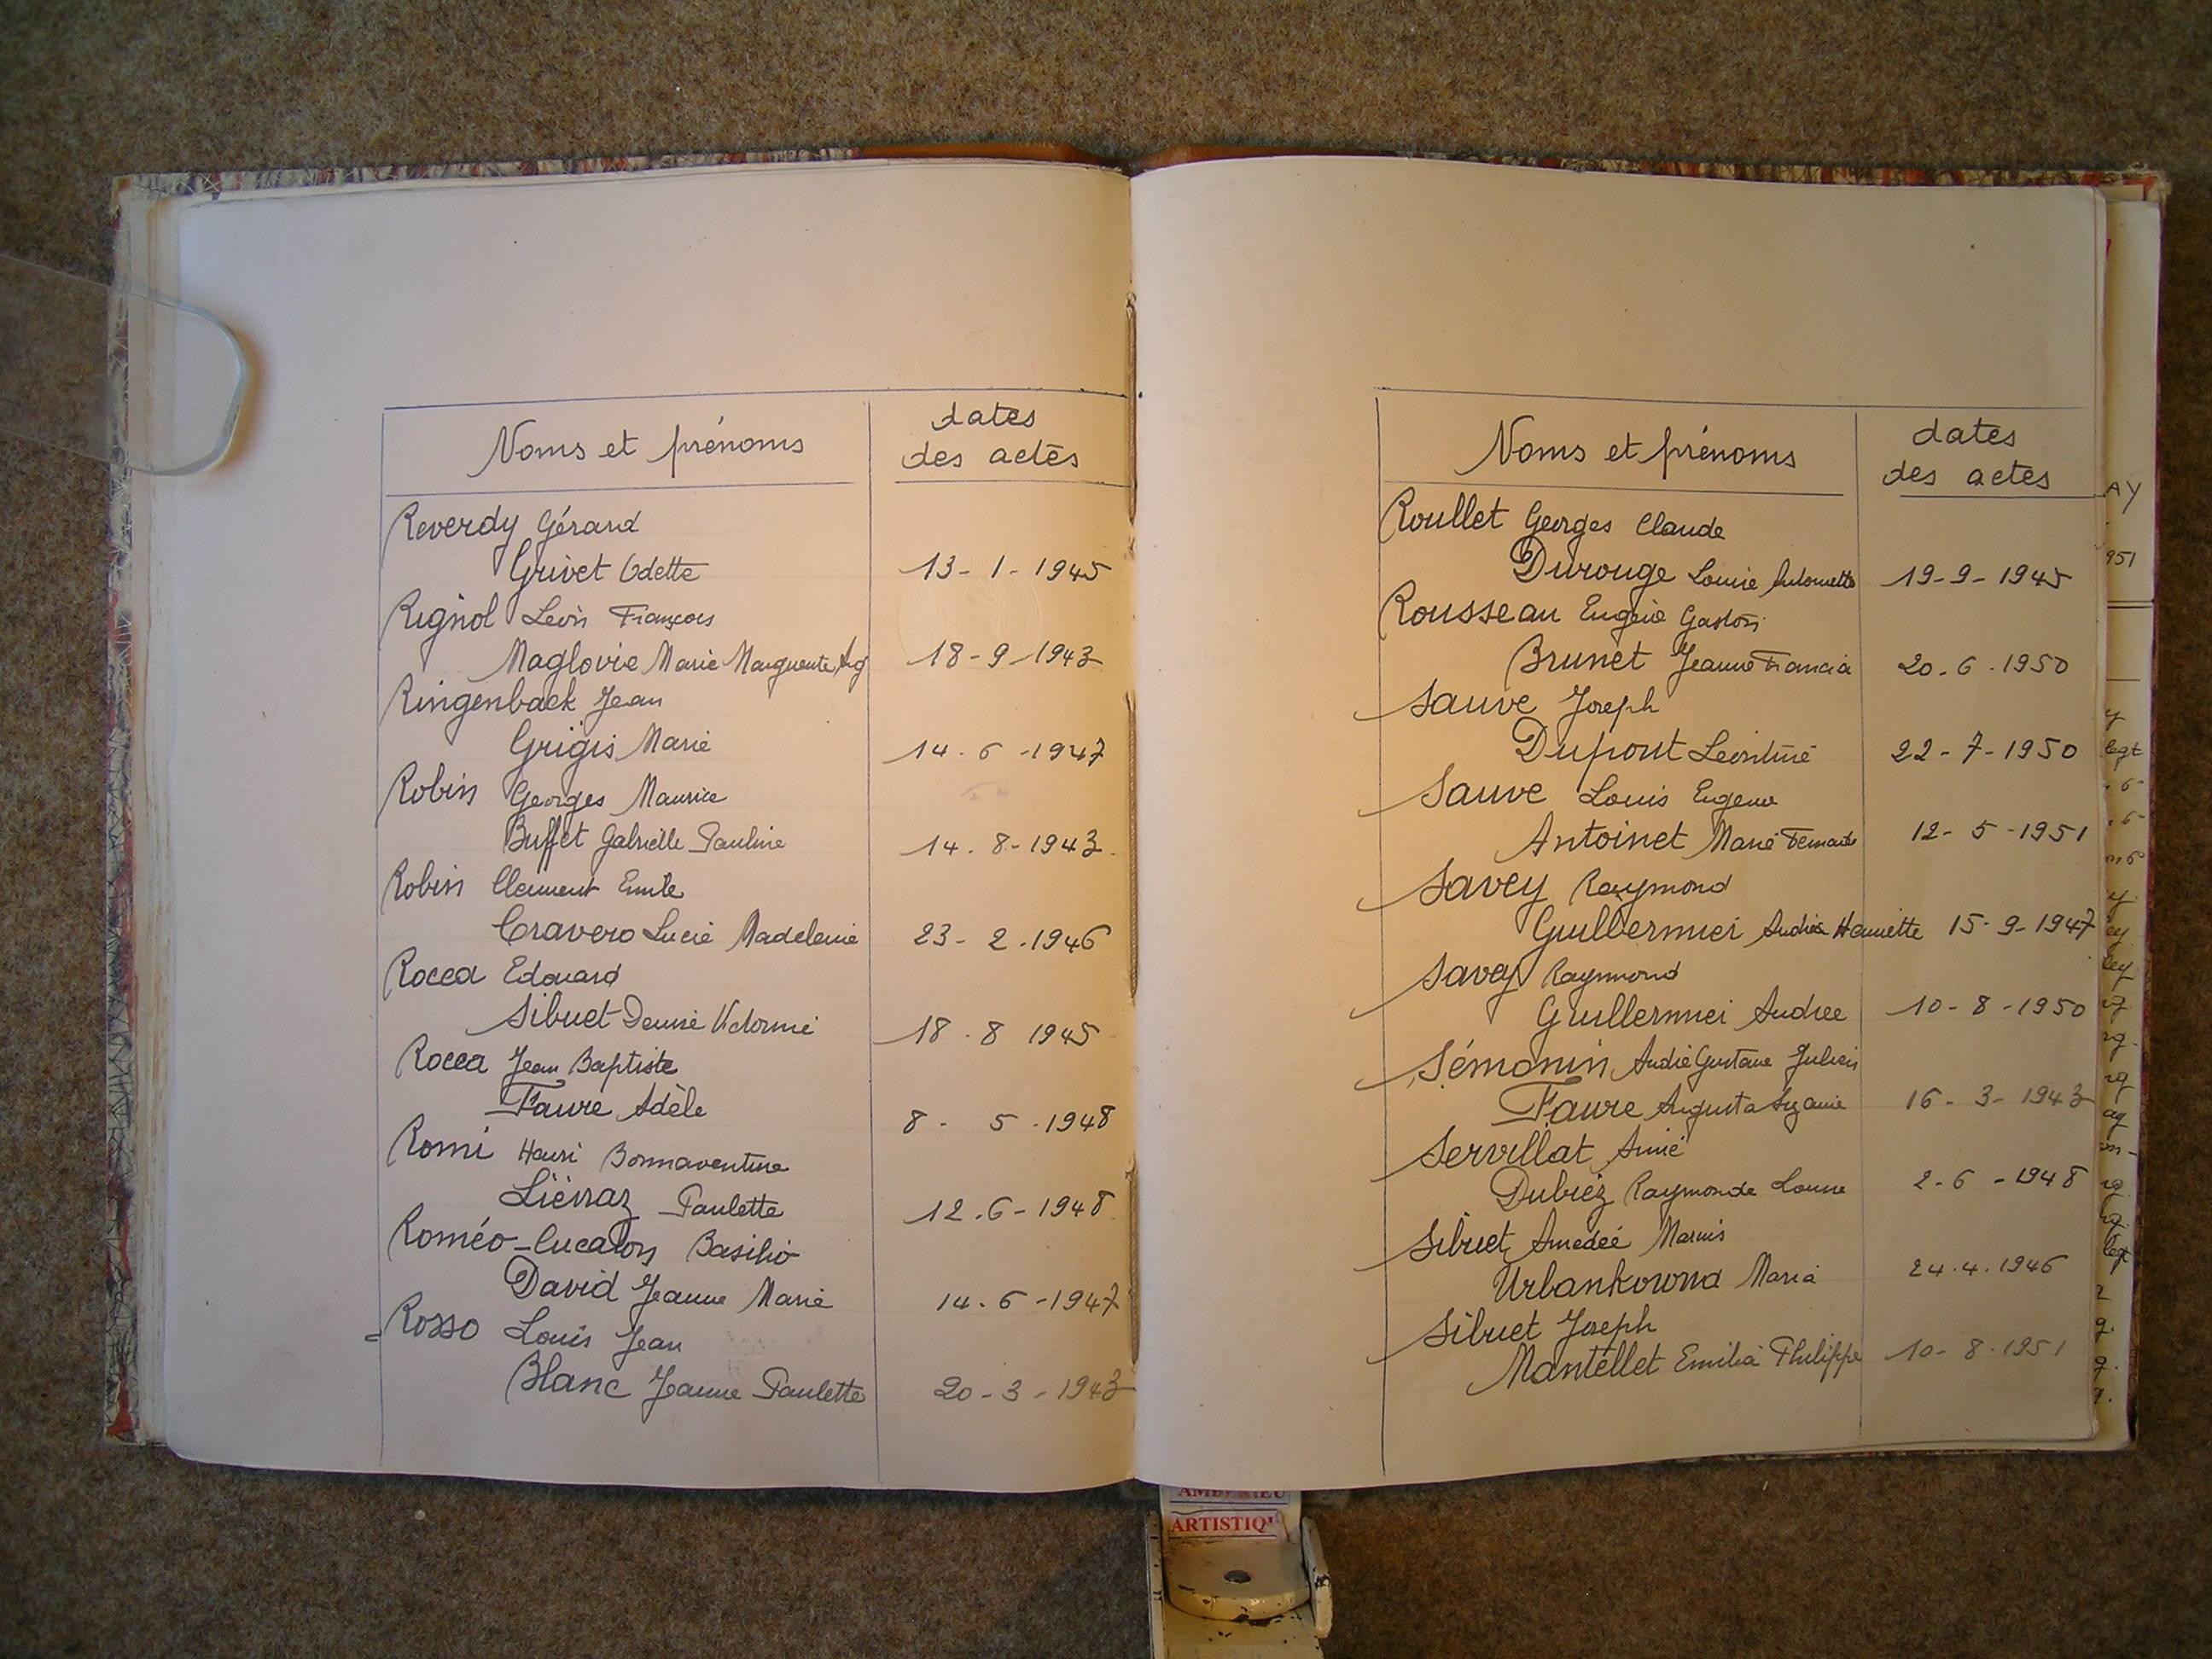 Noms et prénoms
dates
des actes
Reverdy Gérard
Grivet Odette 13-1-1945
Rignol Léon François
Maglovie Marie Marguerite 18-9-1943
Ringenback Jean
Grigis Marie 14.6-1947
Robin Georges Maurice
Buffet Gabrielle Pauline 14.8-1943
Robin Clement Emile
Cravero Lucie Madeleine 23-2.1946
Rocca Edouard
Sibuet Denise Victorine 18.8 1945
Rocca Jean Baptiste
Faure Adèle 8-5-1948
Romi Henri Bonnaventure
Liévraz Paulette 12.6-1948
Roméo-Lucaton Basilio
David Jeanne Marie 14.6-1947
Rosso Louis Jean
Blanc Jeanne Paulette 20-3-1943
Noms et prénoms
dates
des actes
Roullet Georges Claude
Durouge Louise Antoinette 19-9-1945
Rousseau Eugène Gaston
Brunet Jeanne Francia 20.6.1950
Sauve Joseph
Dupont Léontine 22-7-1950
Sauve Louis Eugene
Antoinet Marie Fernande 12-5-1951
Savey Raymond
Guillermier Andrée Henriette 15-9-1947
Savey Raymond
Guillermier Andree 10-8-1950
Sémonin André Gustave Julien
Faure Augusta Suzanne 16-3-1943
Servillat Aimé
Dubiez Raymonde Louise 2-6-1948
Sibuet Amedée Marius
Urbankowna Maria 24.4.1946
Sibuet Joseph
Mantellet Emilia Philippe 10-8-1951
AY
951
ARTISTIQ